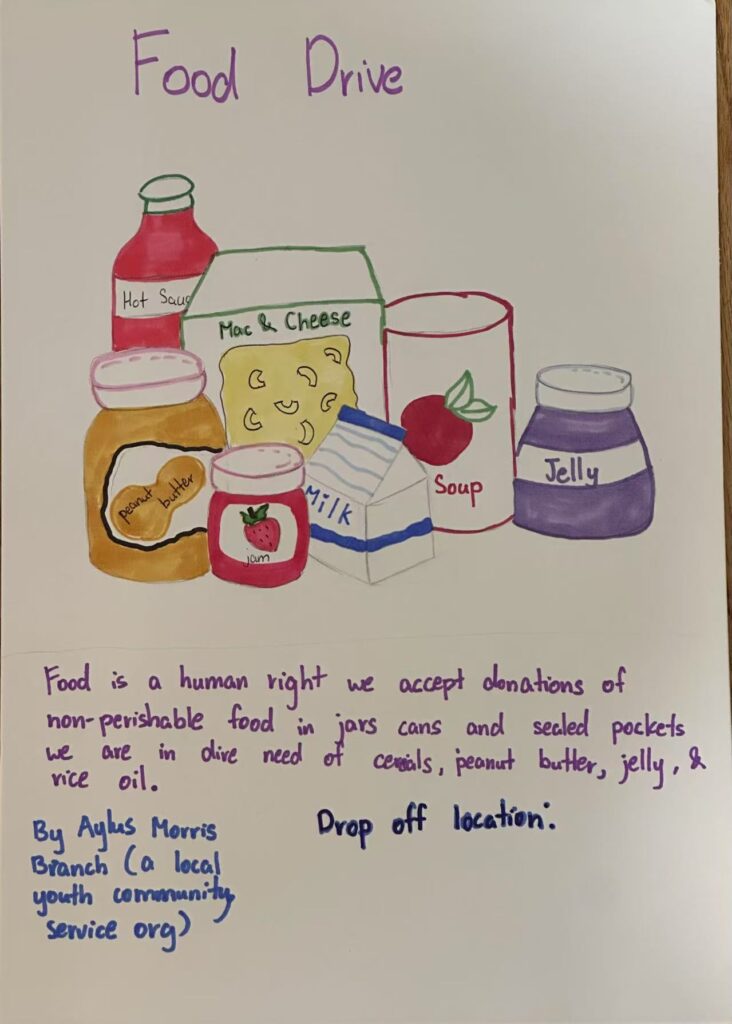 Food Drive
Hot Sauc
Mac & Cheese
peanut butter
jam
Milk
Soup
Jelly
Food is a human right we accept donations of
non-perishable food in jars cans and sealed pockets
we are in dire need of cerials, peanut butter, jelly, &
rice oil.
By Aylus Morris
Branch (a local
youth community
service org)
Drop off location: